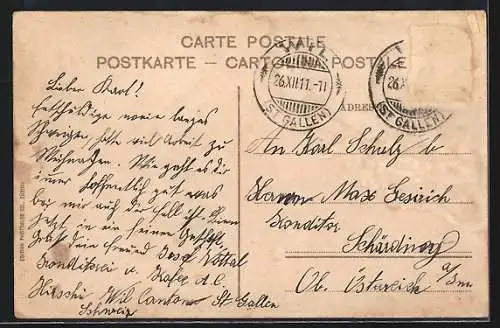 CARTE POSTALE
POSTKARTE - CARTOLINA POSTALE
WIL
26.XII.11.-11
(ST GALLEN)
26.X
(ST GALLEN)
ADRES
Lieber Karl!
Entschuldige mein langes
Schweigen hatte viel Arbeit zu
Weihnachten. Wie geht es dir
immer hoffentlich gut was
bei mir auch der Fall ist. Bin
jetzt in ein feinen Geschäft.
Grüst dein Freund Josef
Konditorei u. Kafee z. C.
Wil Canton St Gallen
Schweiz
An Karl Schulz b
Herrn Max
Konditor
Schärding
Ob. Östereich a/Inn